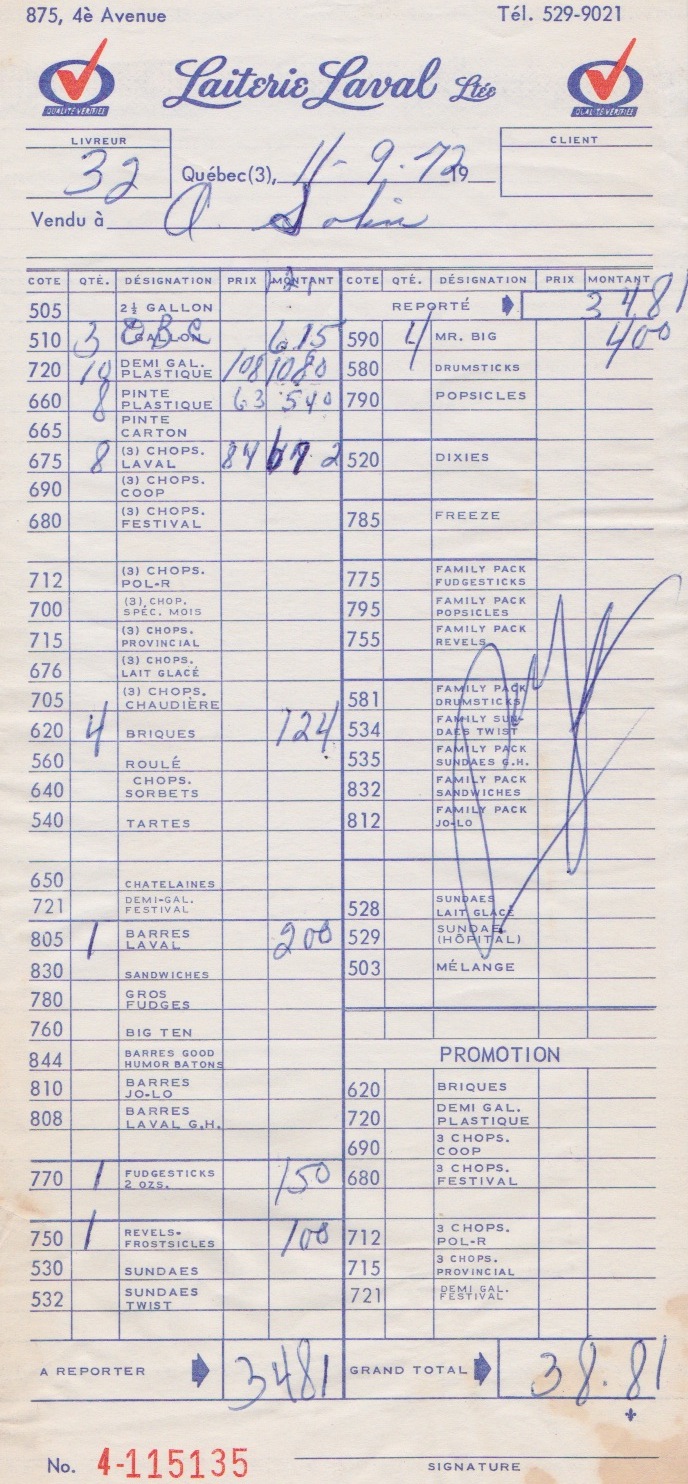 875, 4è Avenue Tél. 529-9021
QUALITÉ VÉRIFIÉE Laiterie Laval Ltée QUALITÉ VÉRIFIÉE
LIVREUR CLIENT
32 Québec(3), 11-9-72 19
Vendu à
COTE QTÉ. DÉSIGNATION PRIX MONTANT
505 2½ GALLON
510 3 GALLON 615
720 10 DEMI GAL. PLASTIQUE 108 1080
660 8 PINTE PLASTIQUE 63 540
665 PINTE CARTON
675 8 (3) CHOPS. LAVAL 84 672
690 (3) CHOPS. COOP
680 (3) CHOPS. FESTIVAL
712 (3) CHOPS. POL-R
700 (3) CHOP. SPÉC. MOIS
715 (3) CHOPS. PROVINCIAL
676 (3) CHOPS. LAIT GLACÉ
705 (3) CHOPS. CHAUDIÈRE
620 4 BRIQUES 124
560 ROULÉ
640 CHOPS. SORBETS
540 TARTES
650 CHATELAINES
721 DEMI-GAL. FESTIVAL
805 1 BARRES LAVAL 200
830 SANDWICHES
780 GROS FUDGES
760 BIG TEN
844 BARRES GOOD HUMOR BATONS
810 BARRES JO-LO
808 BARRES LAVAL G.H.
770 1 FUDGESTICKS 2 OZS. 150
750 1 REVELS-FROSTSICLES 100
530 SUNDAES
532 SUNDAES TWIST
A REPORTER 3481
COTE QTÉ. DÉSIGNATION PRIX MONTANT
REPORTÉ 3481
590 4 MR. BIG 400
580 DRUMSTICKS
790 POPSICLES
520 DIXIES
785 FREEZE
775 FAMILY PACK FUDGESTICKS
795 FAMILY PACK POPSICLES
755 FAMILY PACK REVELS
581 FAMILY PACK DRUMSTICKS
534 FAMILY SUN-DAES TWIST
535 FAMILY PACK SUNDAES G.H.
832 FAMILY PACK SANDWICHES
812 FAMILY PACK JO-LO
528 SUNDAES LAIT GLACÉ
529 SUNDAE (HÔPITAL)
503 MÉLANGE
PROMOTION
620 BRIQUES
720 DEMI GAL. PLASTIQUE
690 3 CHOPS. COOP
680 3 CHOPS. FESTIVAL
712 3 CHOPS. POL-R
715 3 CHOPS. PROVINCIAL
721 DEMI GAL. FESTIVAL
GRAND TOTAL 38.81
No. 4-115135 SIGNATURE